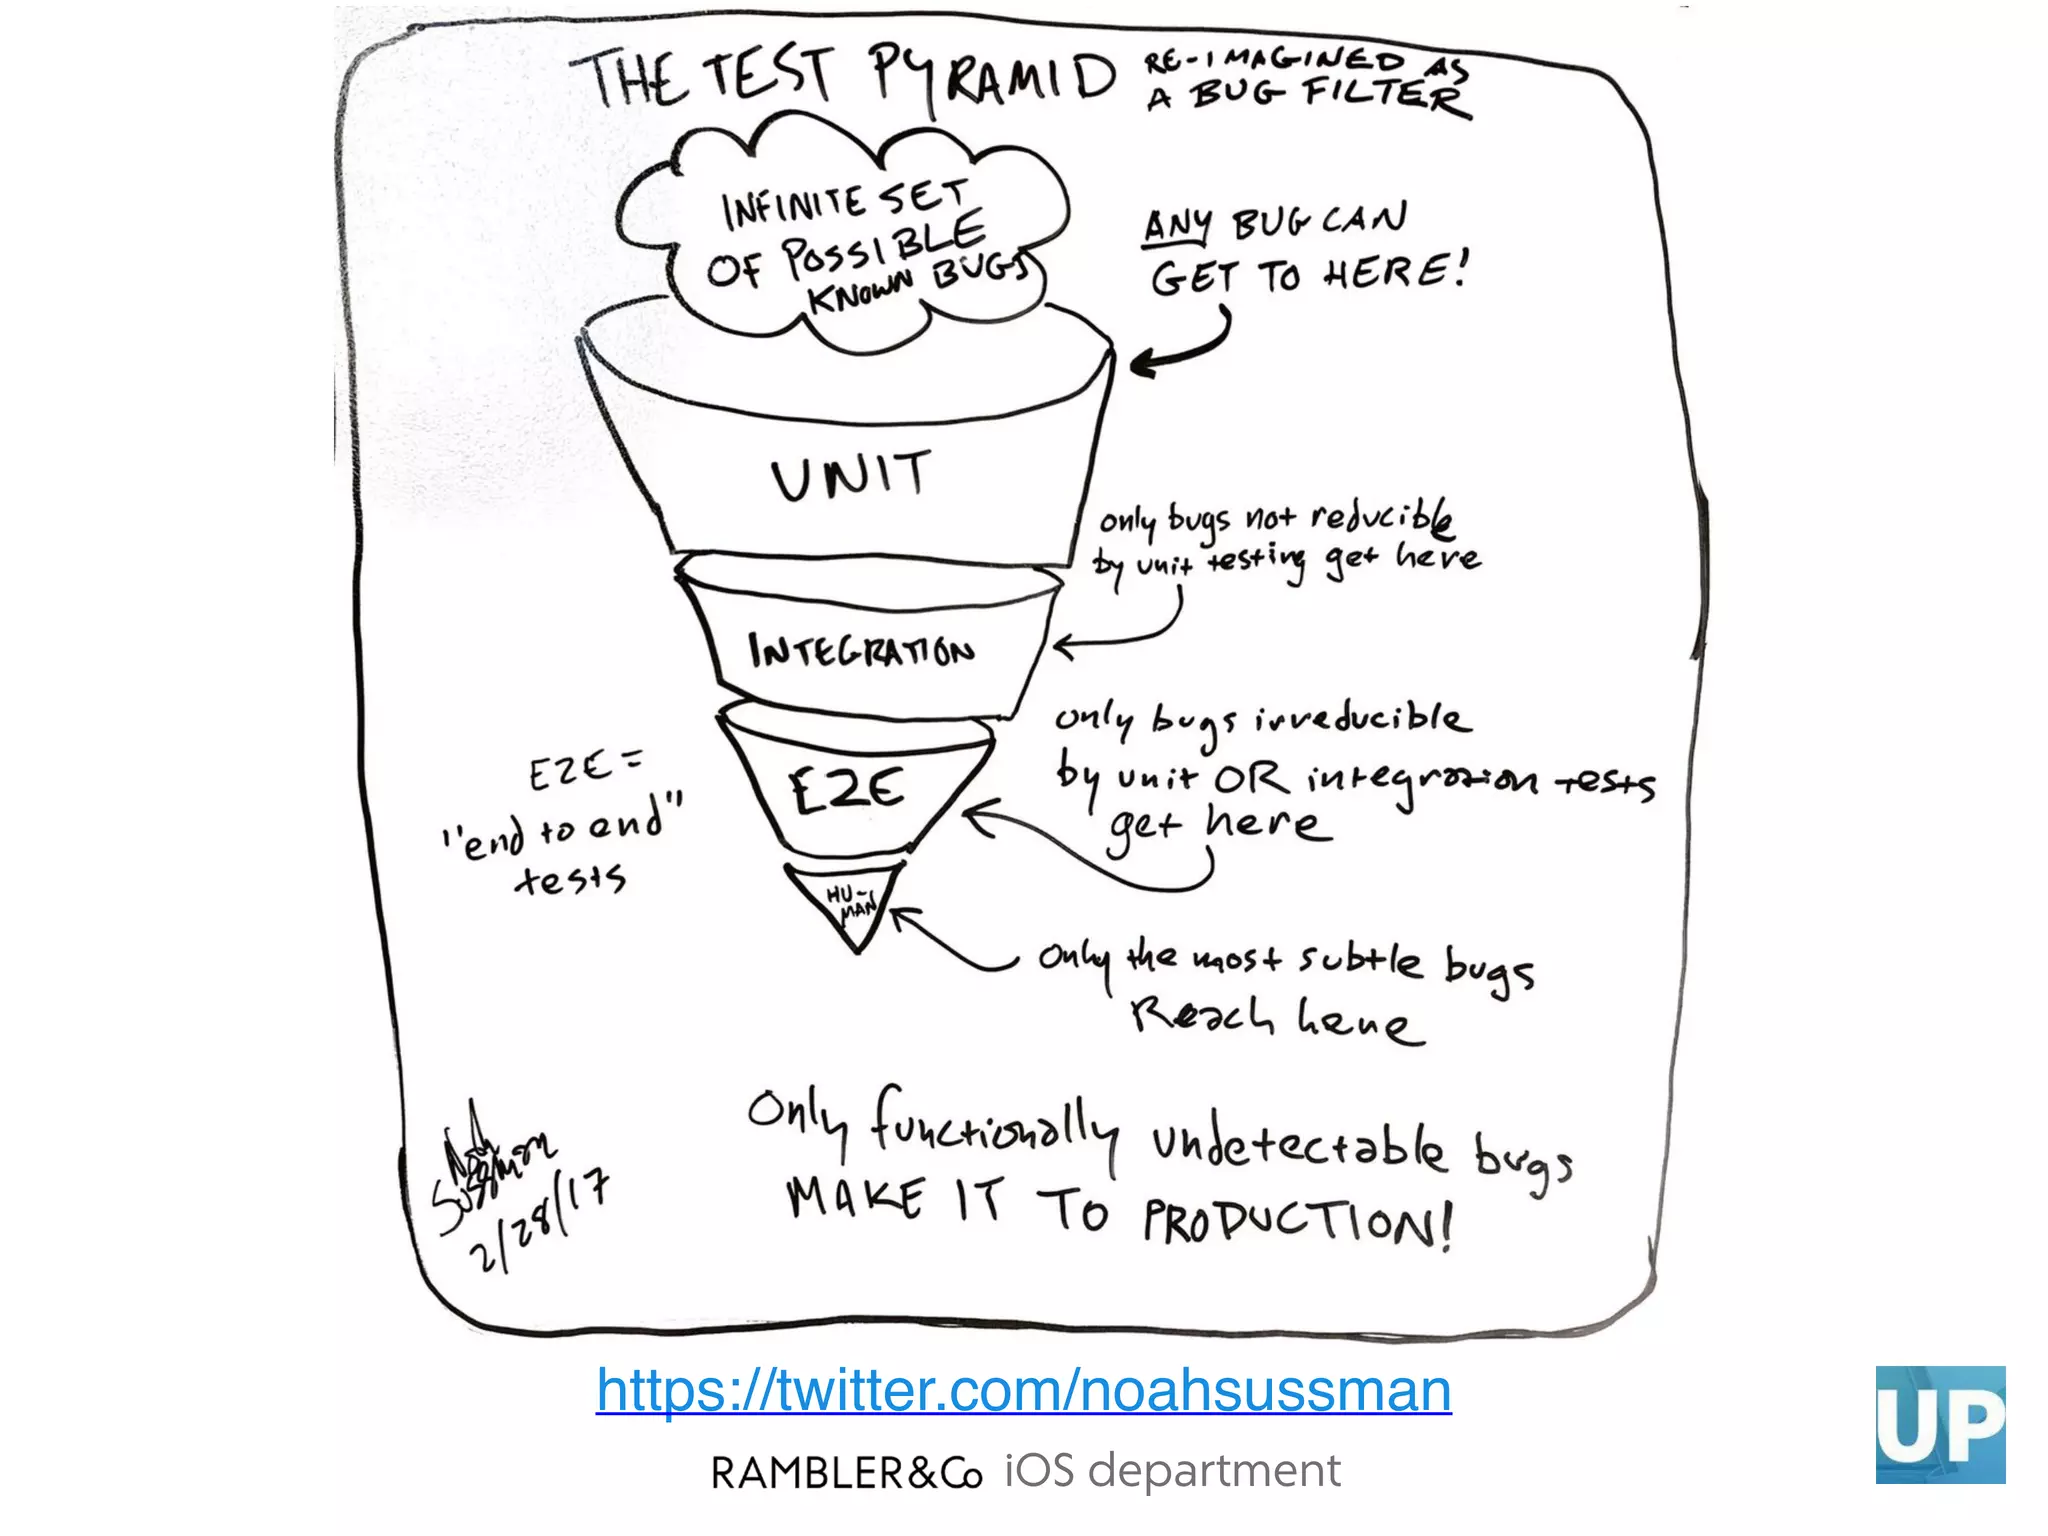 THE TEST PYRAMID RE-IMAGINED AS
A BUG FILTER
INFINITE SET
OF POSSIBLE
KNOWN BUGS
ANY BUG CAN
GET TO HERE!
UNIT
only bugs not reducible
by unit testing get here
INTEGRATION
only bugs irreducible
by unit OR integration tests
get here
E2E =
"end to end"
tests
E2E
HU-
MAN
Only the most subtle bugs
Reach here
Only functionally undetectable bugs
MAKE IT TO PRODUCTION!
Noah
Sussman
2/28/17
https://twitter.com/noahsussman
RAMBLER&Co iOS department
UP